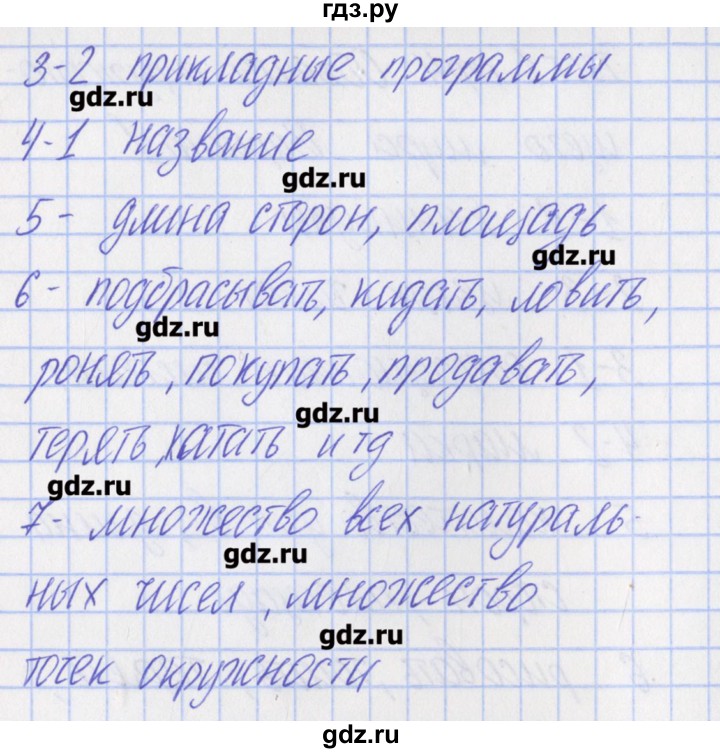 гдз.ру
3-2 прикладные программы
gdz.ru
4-1 название
gdz.ru
5 - длина сторон, площадь
gdz.ru
6 - подбрасывать, кидать, ловить,
gdz.ru
ронять, покупать, продавать,
gdz.ru
терять, катать и тд
gdz.ru
7- множество всех натураль-
gdz.ru
ных чисел, множество
gdz.ru
точек окружности
gdz.ru